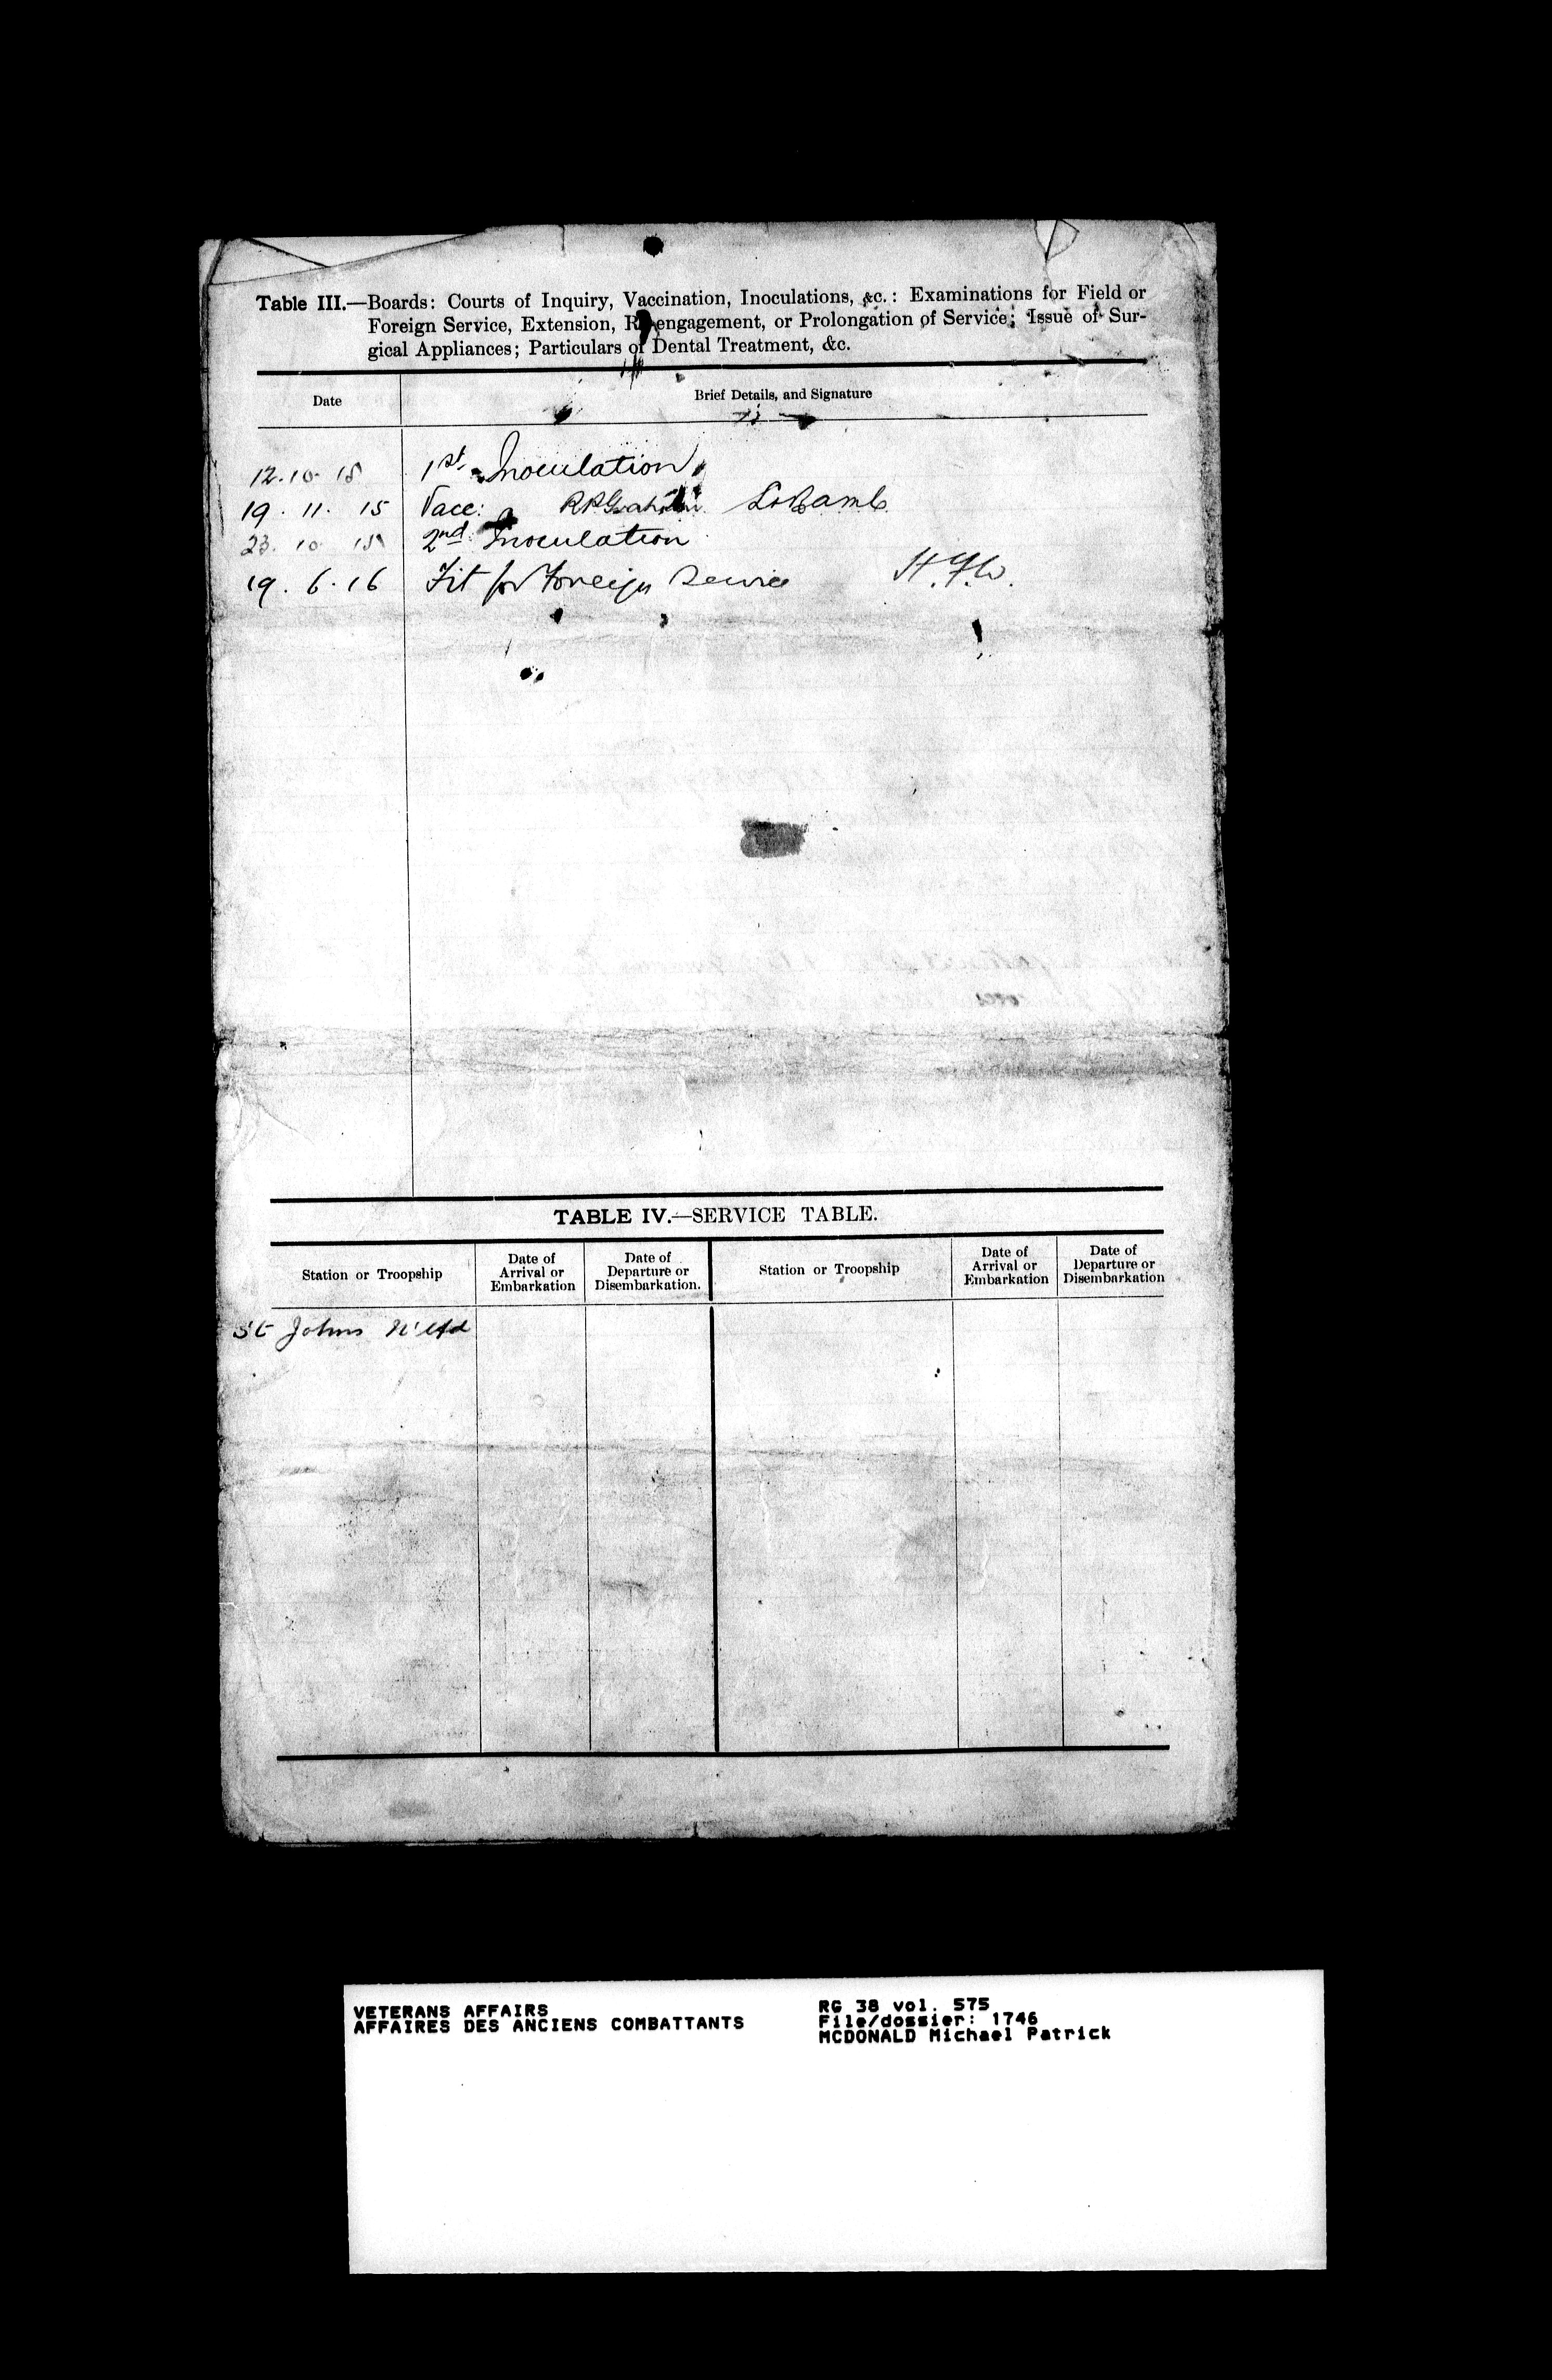 Table III.—Boards: Courts of Inquiry, Vaccination, Inoculations, &c.: Examinations for Field or
Foreign Service, Extension, Re-engagement, or Prolongation of Service; Issue of Sur-
gical Appliances; Particulars of Dental Treatment, &c.
Date Brief Details, and Signature
12.10.15 1st Inoculation
19.11.15 Vacc:
23.10.15 2nd Inoculation
19.6.16 Fit for Foreign Service
TABLE IV.—SERVICE TABLE.
Station or Troopship Date of Arrival or Embarkation Date of Departure or Disembarkation. Station or Troopship Date of Arrival or Embarkation Date of Departure or Disembarkation
St Johns N'fld
VETERANS AFFAIRS
AFFAIRES DES ANCIENS COMBATTANTS
RG 38 vol. 575
File/dossier: 1746
MCDONALD Michael Patrick